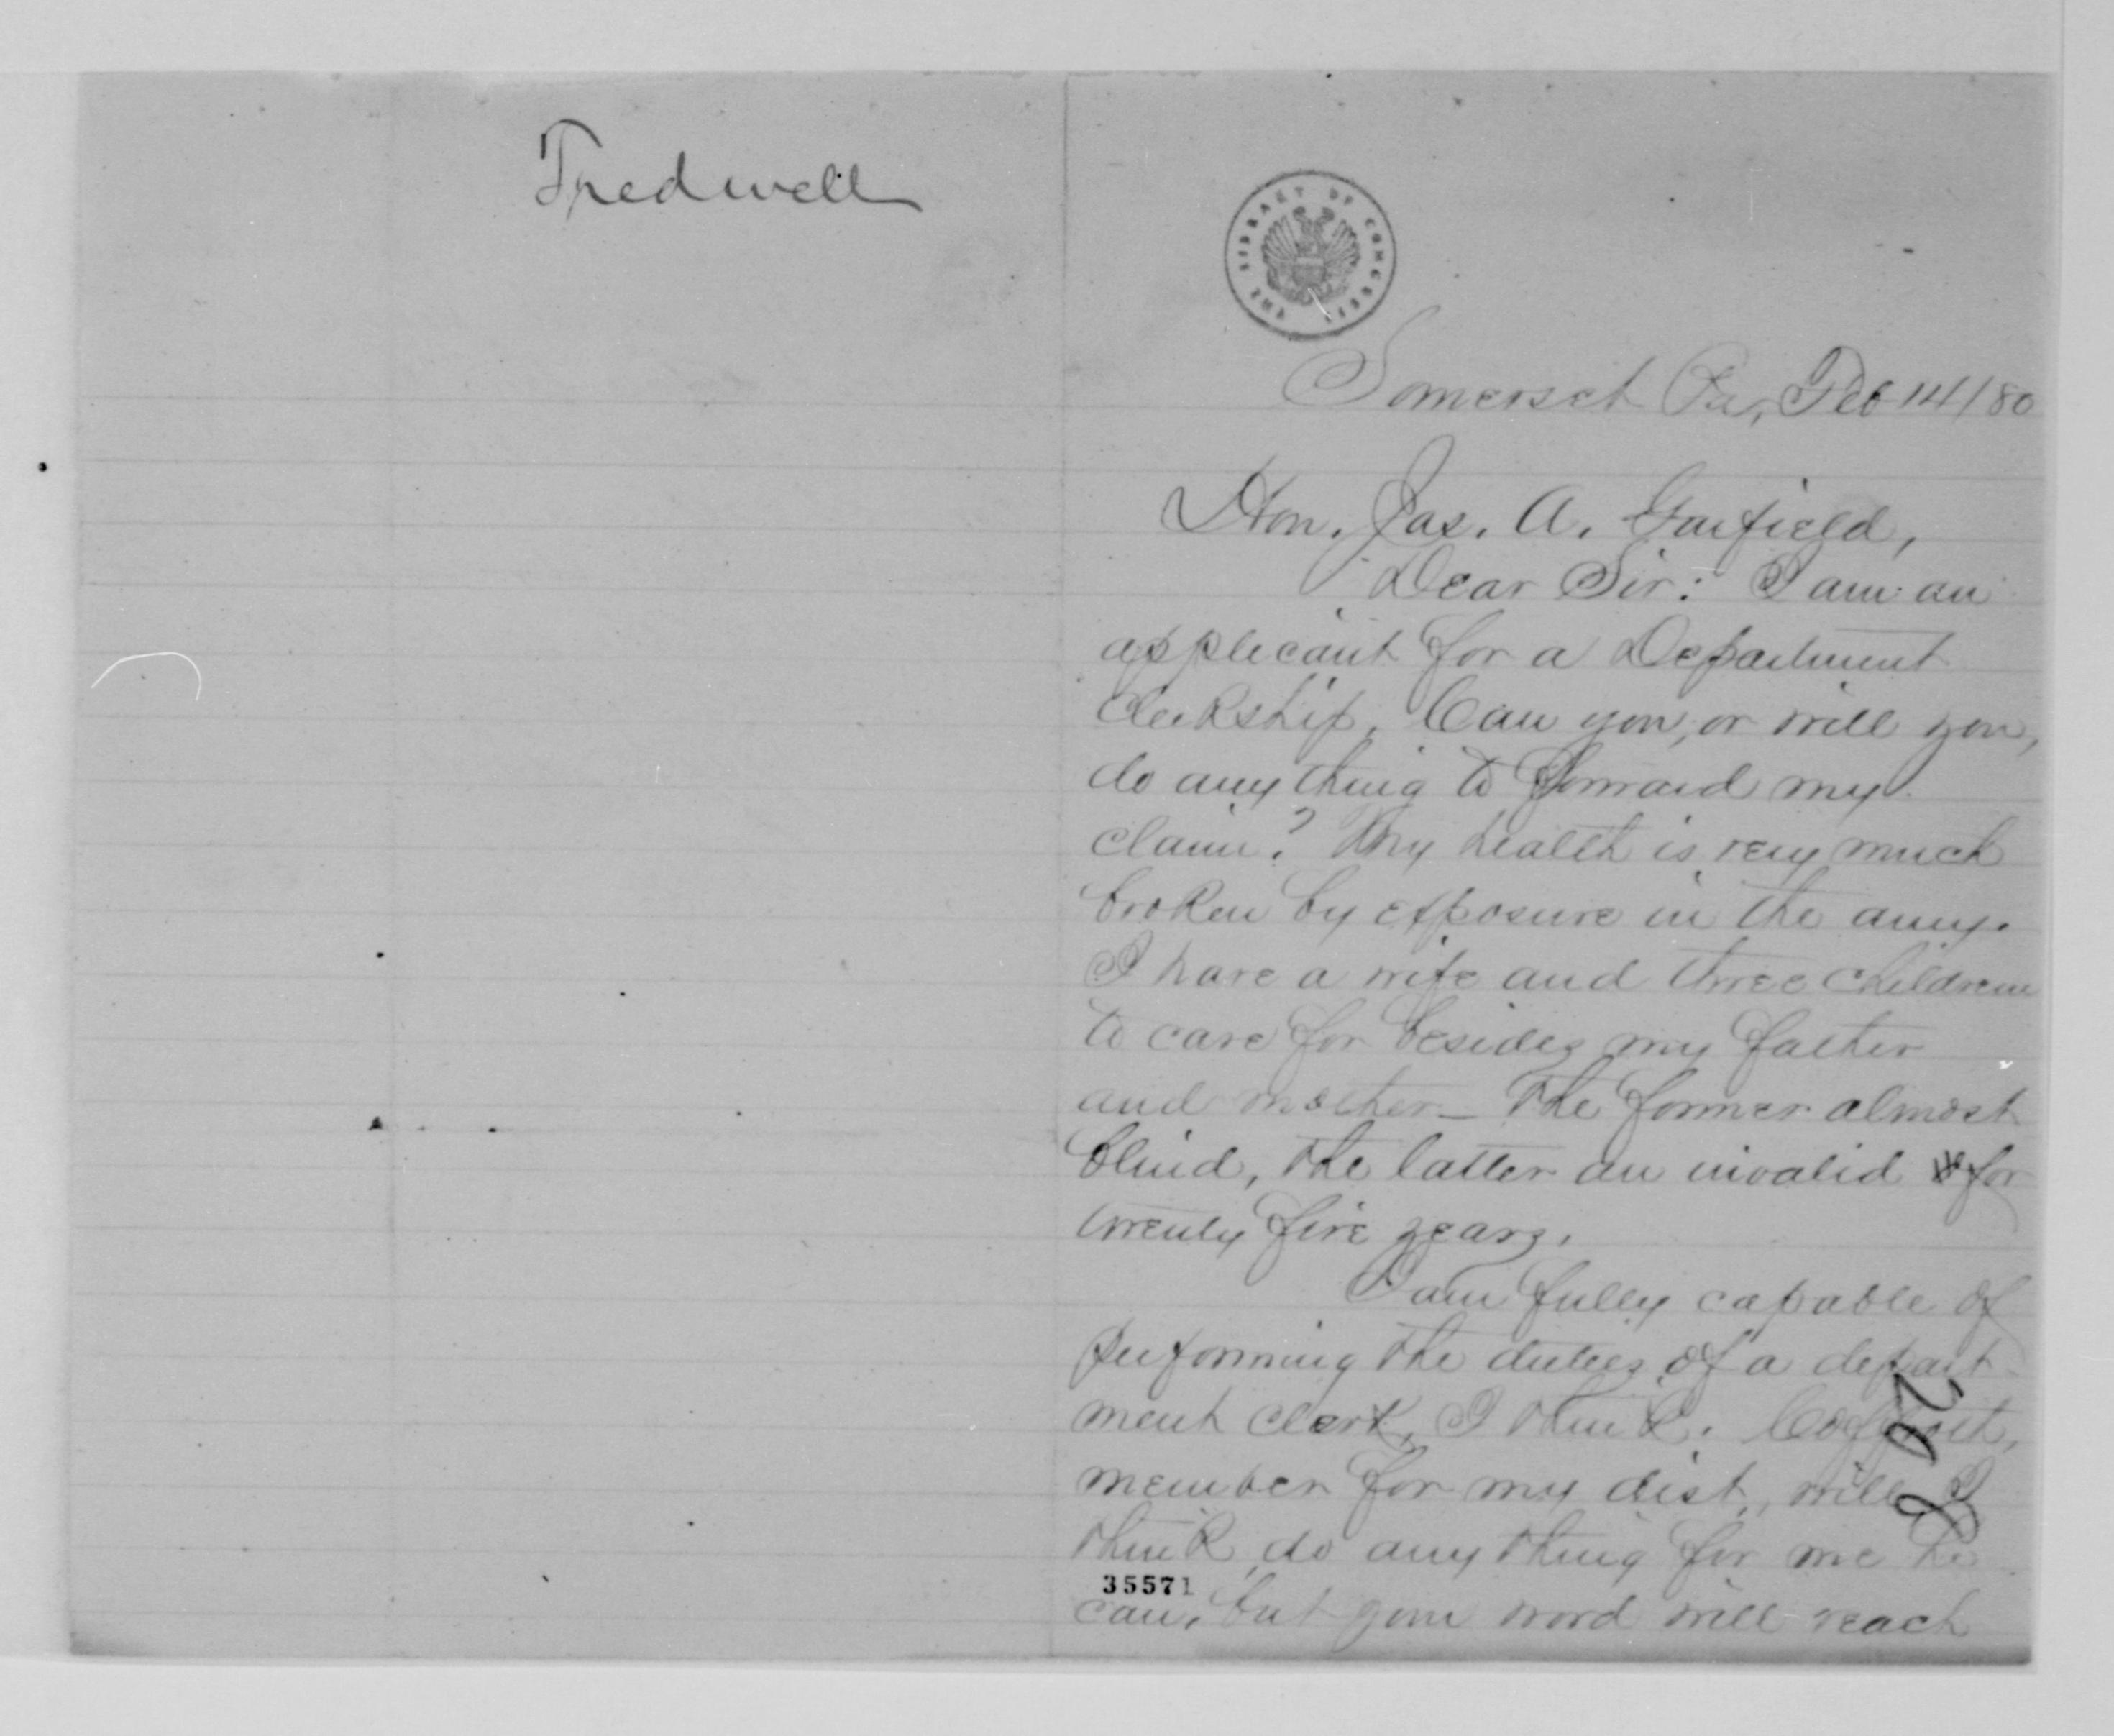 Tredwell
THE LIBRARY OF CONGRESS
Somerset Pa, Feb 14/80
Hon. Jas. A. Garfield,
Dear Sir: I am an
applicant for a Department
clerkship. Can you, or will you,
do anything to forward my
claim? My health is very much
broken by exposure in the army.
I have a wife and three children
to care for besides my father
and mother – the former almost
blind, the latter an invalid for
twenty five years.
I am fully capable of
performing the duties of a depart
ment clerk, I think. Coffroth,
member for my dist., will I
think, do any thing for me he
35571
can, but your word will reach